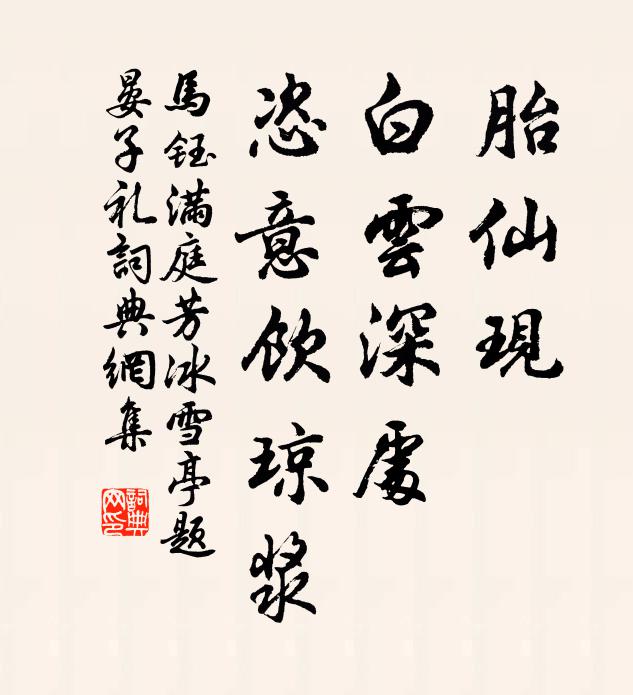 胎仙現
白雲深處
恣意飲琼漿
馬鈺滿庭芳冰雪亭題
晏子礼詞典網集
詞典
网印